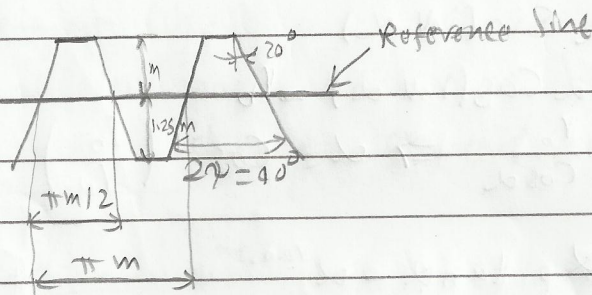 Reference line
20°
m
1.25 m
2ψ = 40°
πm/2
πm